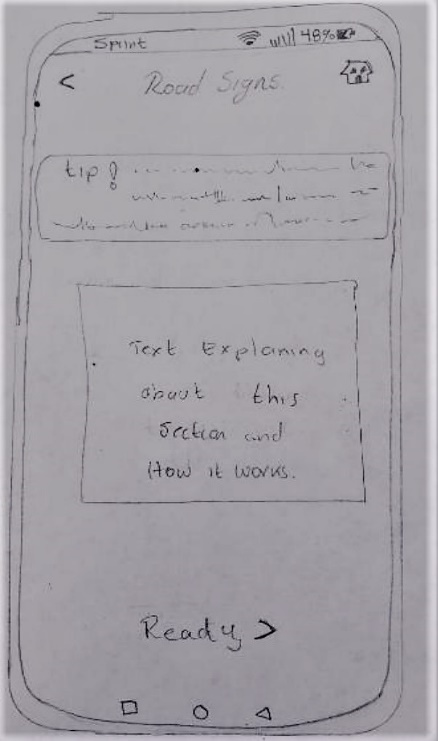 Sprint 48%
< Road Signs.
tip !
Text Explaning
about this
Section and
How it works.
Ready >